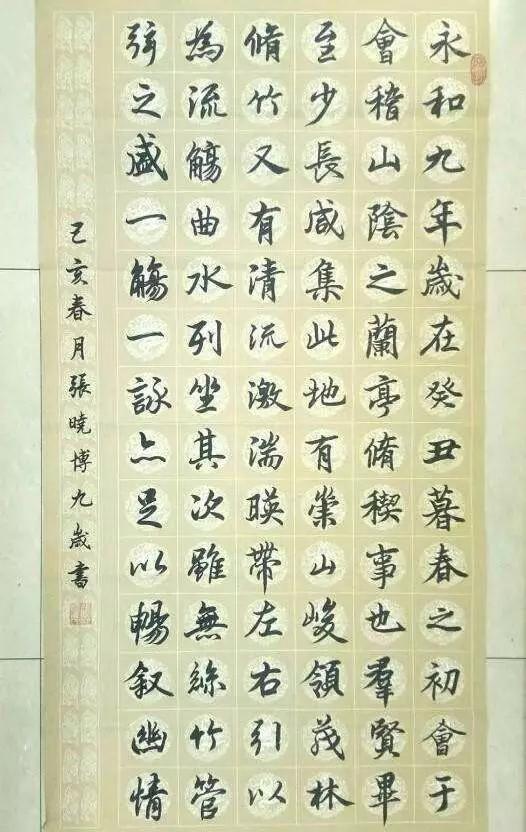 永和九年歲在癸丑暮春之初會于
會稽山陰之蘭亭脩稧事也羣賢畢
至少長咸集此地有崇山峻領茂林
脩竹又有清流激湍暎帶左右引以
為流觴曲水列坐其次雖無絲竹管
弦之盛一觴一詠亦足以暢叙幽情
己亥春月張曉博九歲書